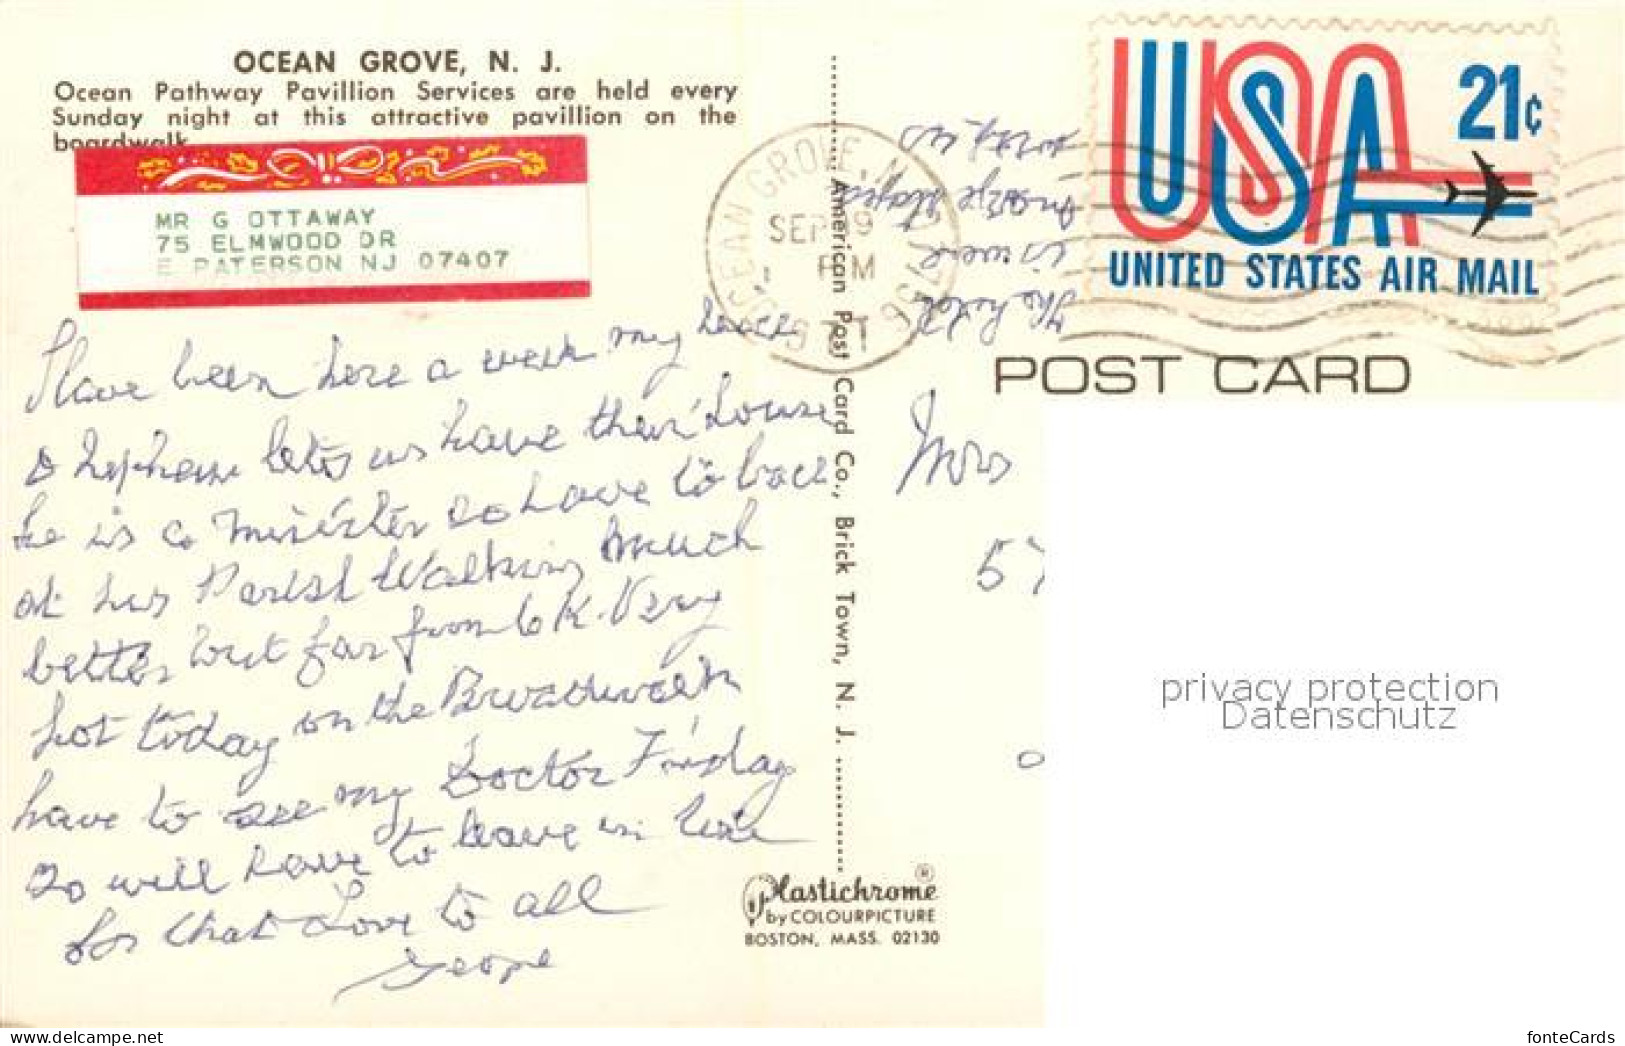 OCEAN GROVE, N. J.
Ocean Pathway Pavillion Services are held every
Sunday night at this attractive pavillion on the
boardwalk
MR G OTTAWAY
75 ELMWOOD DR
E PATERSON NJ 07407
Have been here a week my niece
& nephew lets us have their house
he is a minister so have to back
at his Parish Walking much
better but far from O K. Very
hot today on the Broadwalk
have to see my Doctor Friday
so will have to leave in time
for that Love to all
George
American Post Card Co., Brick Town, N. J.
Plastichrome ®
by COLOURPICTURE
BOSTON, MASS. 02130
OCEAN GROVE, N.J.
SEP 9
PM
The hotel
is were
Marge stayed
with us
USA 21c
UNITED STATES AIR MAIL
POST CARD
Mrs
57
privacy protection
Datenschutz
www.ansichtskartenversand.com
fonteCards